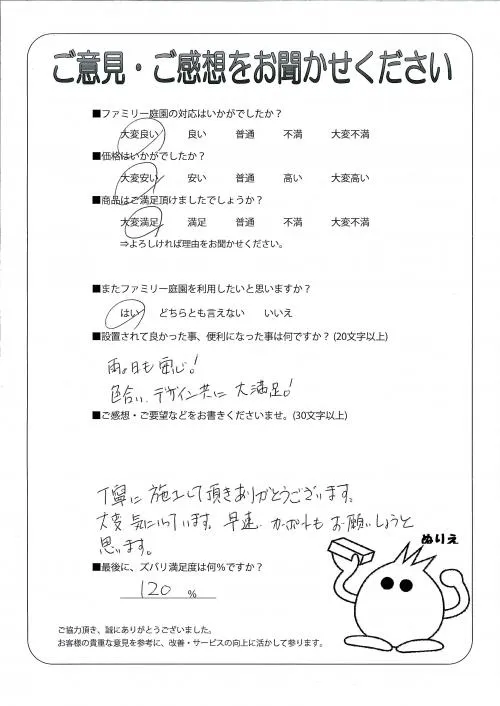 ご意見・ご感想をお聞かせください
■ファミリー庭園の対応はいかがでしたか？
大変良い 良い 普通 不満 大変不満
■価格はいかがでしたか？
大変安い 安い 普通 高い 大変高い
■商品はご満足頂けましたでしょうか？
大変満足 満足 普通 不満 大変不満
⇒よろしければ理由をお聞かせください。
■またファミリー庭園を利用したいと思いますか？
はい どちらとも言えない いいえ
■設置されて良かった事、便利になった事は何ですか？(20文字以上)
雨の日も安心！
色合い、デザイン共に大満足！
■ご感想・ご要望などをお書きくださいませ。(30文字以上)
丁寧に施工して頂きありがとうございます。
大変気に入っています。早速、カーポートもお願いしようと
思います。
ぬりえ
■最後に、ズバリ満足度は何%ですか？
120 %
ご協力頂き、誠にありがとうございました。
お客様の貴重な意見を参考に、改善・サービスの向上に活かして参ります。